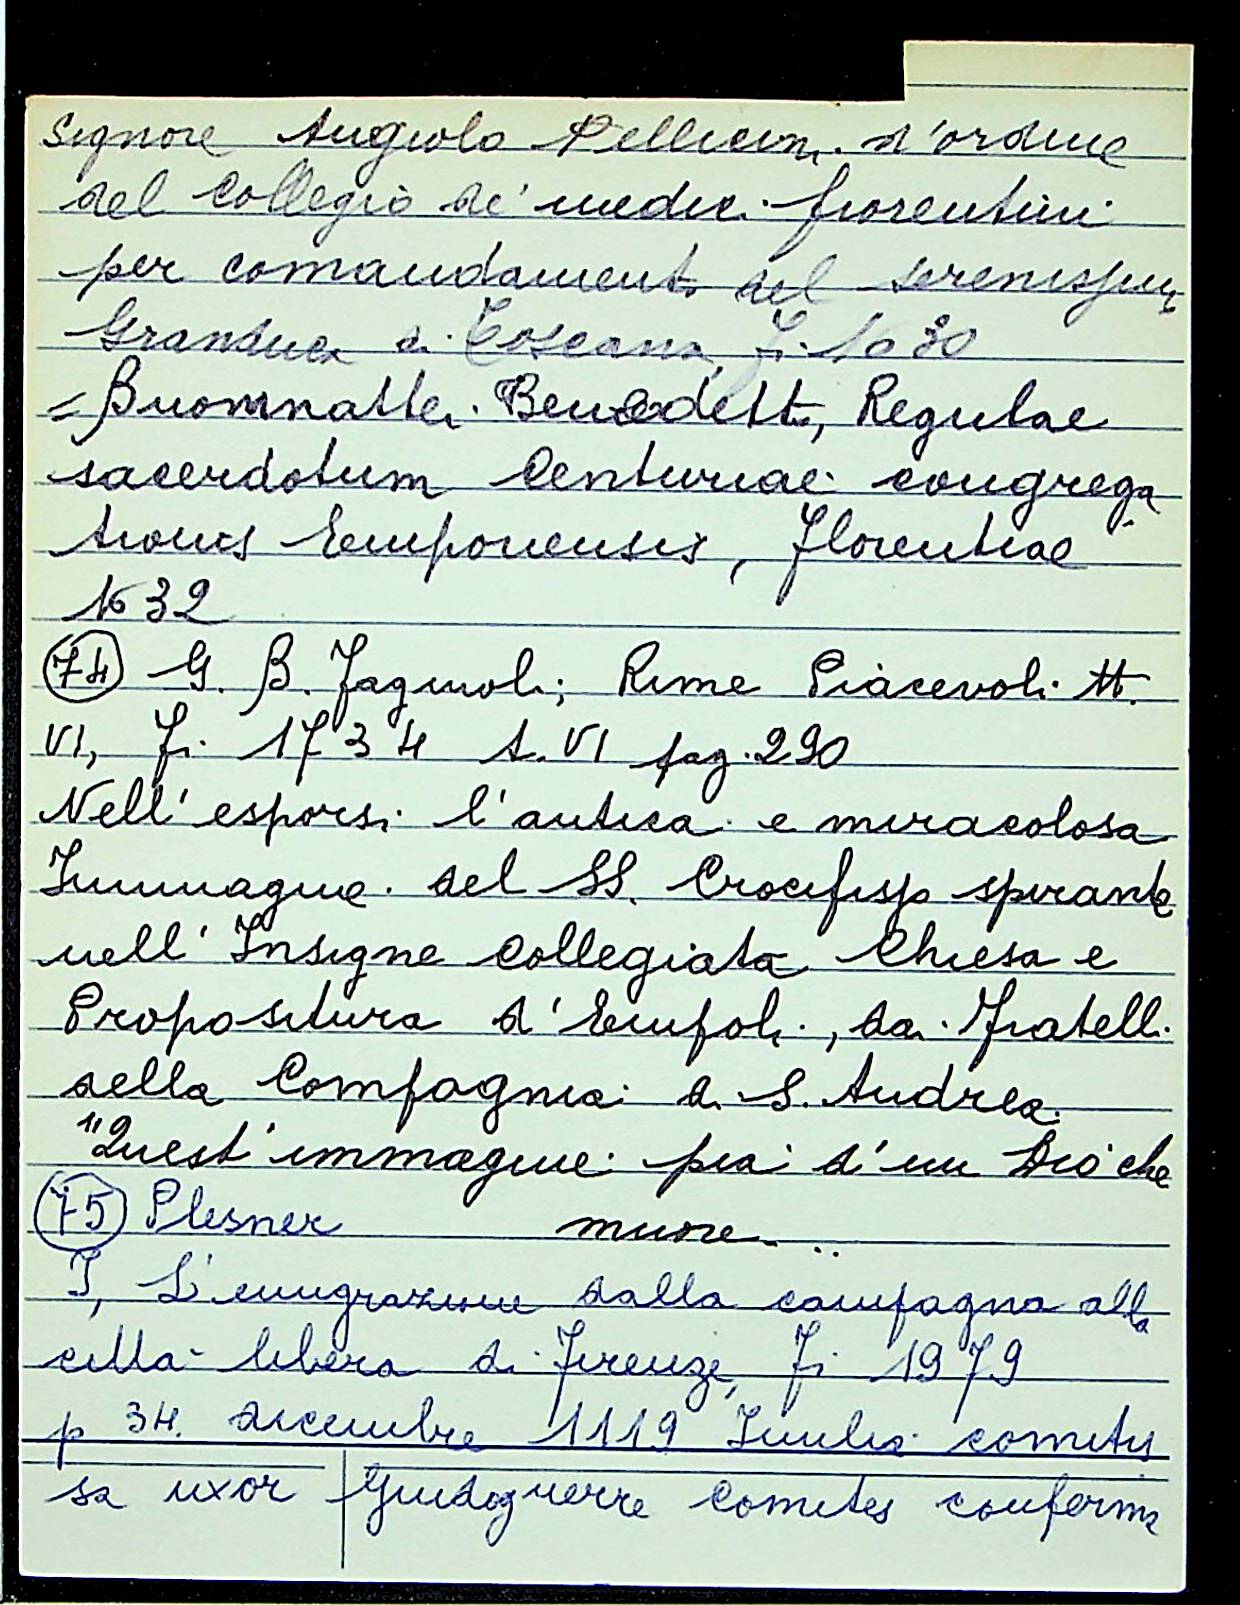 Signore Angiolo Pellicini d'ordine
del Collegio de' medici fiorentini
per comandamento del serenissimo
Granduca di Toscana, Fi. 1630
= Buommattei Benedetto, Regulae
sacerdotum Centuriae congrega
tionis Emporensis, Florentiae
1632
(74) G. B. Fagiuoli; Rime Piacevoli tt.
VI, Fi. 1734 t. VI pag. 290
Nell'esporsi l'antica e miracolosa
Immagine del SS. Crocifisso spirante
nell'Insigne Collegiata Chiesa e
Propositura d'Empoli, da Fratelli
della Compagnia di S. Andrea.
"Quest'immagine pia d'un Dio che
muore...
(75) Plesner
J, L'emigrazione dalla campagna alla
città libera di Firenze, Fi 1979
p 34. dicembre 1119 Imilia comitis
sa uxor Guidoguerre Comites conferma